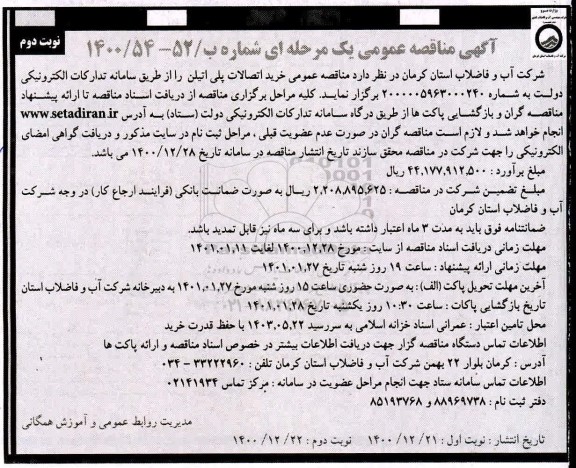 نوبت دوم
آگهی مناقصه عمومی یک مرحله ای شماره ب/۵۲- ۱۴۰۰/۵۴
شرکت آب و فاضلاب استان کرمان در نظر دارد مناقصه عمومی خرید اتصالات پلی اتیلن را از طریق سامانه تدارکات الکترونیکی
دولت به شماره ۲۰۰۰۰۰۵۹۶۳۰۰۰۲۴۰ برگزار نمایـد. کلیه مراحل برگزاری مناقصه از دریافت اسـناد مناقصه تا ارائه پیشـنهاد
مناقصـه گران و بازگشـایی پاکت ها از طریق درگاه سـامانه تدارکات الکترونیکی دولت (سـتاد) بـه آدرس www.setadiran.ir
انجام خواهد شـد و لازم اسـت مناقصه گران در صورت عدم عضویت قبلی ، مراحل ثبت نام در سایت مذکور و دریافت گواهی امضای
الکترونیکی را جهت شرکت در مناقصه محقق سازند تاریخ انتشار مناقصه در سامانه تاریخ ۱۴۰۰/۱۲/۲۸ می باشد.
مبلغ برآورد : ۴۴,۱۷۷,۹۱۲,۵۰۰ ریال
مبلـغ تضمیـن شـرکت در مناقصـه : ۲,۲۰۸,۸۹۵,۶۲۵ ریـال به صورت ضمانـت بانکی (فراینـد ارجاع کار) در وجه شـرکت
آب و فاضلاب استان کرمان
ضمانتنامه فوق باید به مدت ۳ ماه اعتبار داشته باشد و برای سه ماه نیز قابل تمدید باشد.
مهلت زمانی دریافت اسناد مناقصه از سایت : مورخ ۱۴۰۰.۱۲.۲۸ لغایت ۱۴۰۱.۰۱.۱۱
مهلت زمانی ارائه پیشنهاد : ساعت ۱۹ روز شنبه تاریخ ۱۴۰۱.۰۱.۲۷
آخرین مهلت تحویل پاکت (الف) : به صورت حضوری ساعت ۱۵ روز شنبه مورخ ۱۴۰۱.۰۱.۲۷ به دبیرخانه شرکت آب و فاضلاب استان
تاریخ بازگشایی پاکات : ساعت ۱۰:۳۰ روز یکشنبه تاریخ ۱۴۰۱.۰۱.۲۸
محل تامین اعتبار : عمرانی اسناد خزانه اسلامی به سررسید ۱۴۰۳.۰۵.۲۲ با حفظ قدرت خرید
اطلاعات تماس دستگاه مناقصه گزار جهت دریافت اطلاعات بیشتر در خصوص اسناد مناقصه و ارائه پاکت ها
آدرس : کرمان بلوار ۲۲ بهمن شرکت آب و فاضلاب استان کرمان تلفن : ۳۳۲۲۲۹۶۰ - ۰۳۴
اطلاعات تماس سامانه ستاد جهت انجام مراحل عضویت در سامانه : مرکز تماس ۰۲۱۴۱۹۳۴
دفتر ثبت نام : ۸۸۹۶۹۷۳۸ و ۸۵۱۹۳۷۶۸
مدیریت روابط عمومی و آموزش همگانی
تاریخ انتشار : نوبت اول : ۱۴۰۰/۱۲/۲۱ نوبت دوم : ۱۴۰۰/۱۲/۲۲